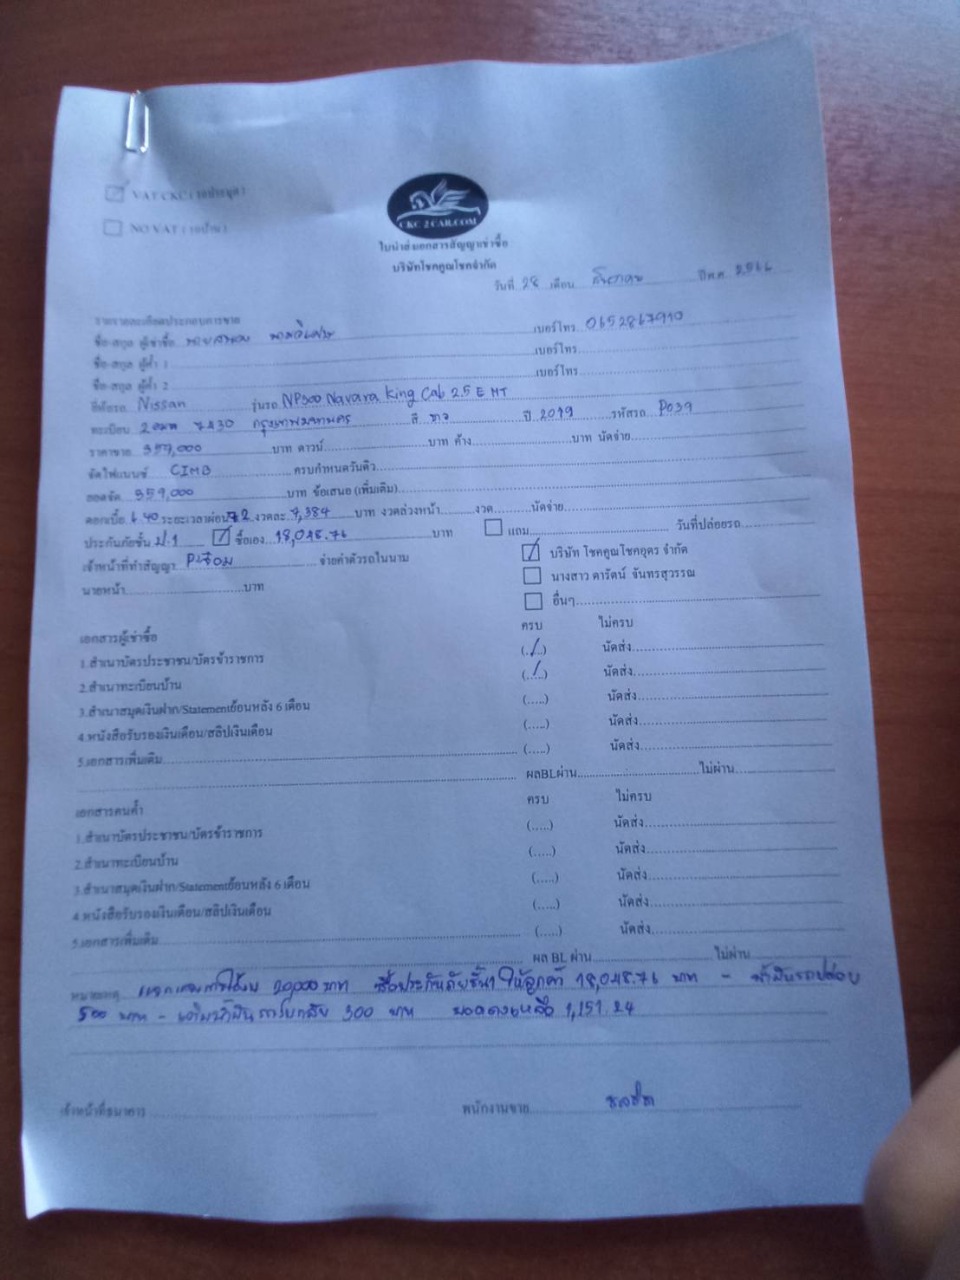 VAT CKC ( รถประมูล )
NO VAT ( รถบ้าน )
CKC 2 CAR.COM
ใบนำส่งเอกสารสัญญาเช่าซื้อ
บริษัทโชคคูณโชคจำกัด
วันที่ 28 เดือน ธันวาคม ปี พ.ศ. 2566
รายรายละเอียดประกอบการขาย
ชื่อ-สกุล ผู้เช่าซื้อ เบอร์โทร 0652867910
ชื่อ-สกุล ผู้ค้ำ 1 เบอร์โทร
ชื่อ-สกุล ผู้ค้ำ 2 เบอร์โทร
ยี่ห้อรถ Nissan รุ่นรถ NP300 Navara King Cab 2.5 E MT
ทะเบียน 7430 กรุงเทพมหานคร สี ขาว ปี 2019 รหัสรถ P039
ราคาขาย 359,000 บาท ดาวน์ บาท ค้าง บาท นัดจ่าย
จัดไฟแนนซ์ CIMB ครบกำหนดวันคิว
ยอดจัด 359,000 บาท ข้อเสนอ (เพิ่มเติม)
ดอกเบี้ย 6.40 ระยะเวลาผ่อน 72 งวดละ 7,384 บาท งวดล่วงหน้า งวด นัดจ่าย
ประกันภัยชั้น ป.1 ซื้อเอง 18,048.76 บาท แถม วันที่ปล่อยรถ
เจ้าหน้าที่ทำสัญญา จ่ายค่าตัวรถในนาม บริษัท โชคคูณโชคอุดร จำกัด
นายหน้า บาท นางสาว ดารัตน์ จันทรสุวรรณ
อื่นๆ
เอกสารผู้เช่าซื้อ ครบ ไม่ครบ
1.สำเนาบัตรประชาชน/บัตรข้าราชการ (../..) นัดส่ง
2.สำเนาทะเบียนบ้าน (../..) นัดส่ง
3.สำเนาสมุดเงินฝาก/Statementย้อนหลัง 6 เดือน (.....) นัดส่ง
4.หนังสือรับรองเงินเดือน/สลิปเงินเดือน (.....) นัดส่ง
5.เอกสารเพิ่มเติม (.....) นัดส่ง
ผลBLผ่าน ไม่ผ่าน
เอกสารคนค้ำ ครบ ไม่ครบ
1.สำเนาบัตรประชาชน/บัตรข้าราชการ (.....) นัดส่ง
2.สำเนาทะเบียนบ้าน (.....) นัดส่ง
3.สำเนาสมุดเงินฝาก/Statementย้อนหลัง 6 เดือน (.....) นัดส่ง
4.หนังสือรับรองเงินเดือน/สลิปเงินเดือน (.....) นัดส่ง
5.เอกสารเพิ่มเติม (.....) นัดส่ง
ผล BL ผ่าน ไม่ผ่าน
หมายเหตุ 20,000 บาท ซื้อประกันภัยชั้น1 ให้ลูกค้า 18,048.76 บาท - น้ำมันรถปล่อย
500 บาท - เติมน้ำมัน 300 บาท ยอดคงเหลือ 1,151.24
เจ้าหน้าที่ธนาคาร พนักงานขาย